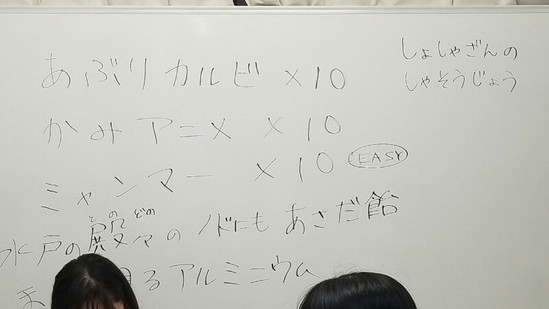 あぶりカルビ×10
しょしゃざんの
しゃそうじょう
かみアニメ×10
ミャンマー×10 EASY
とのどの
水戸の殿々の ノドにも あさだ飴
るアルミニウム